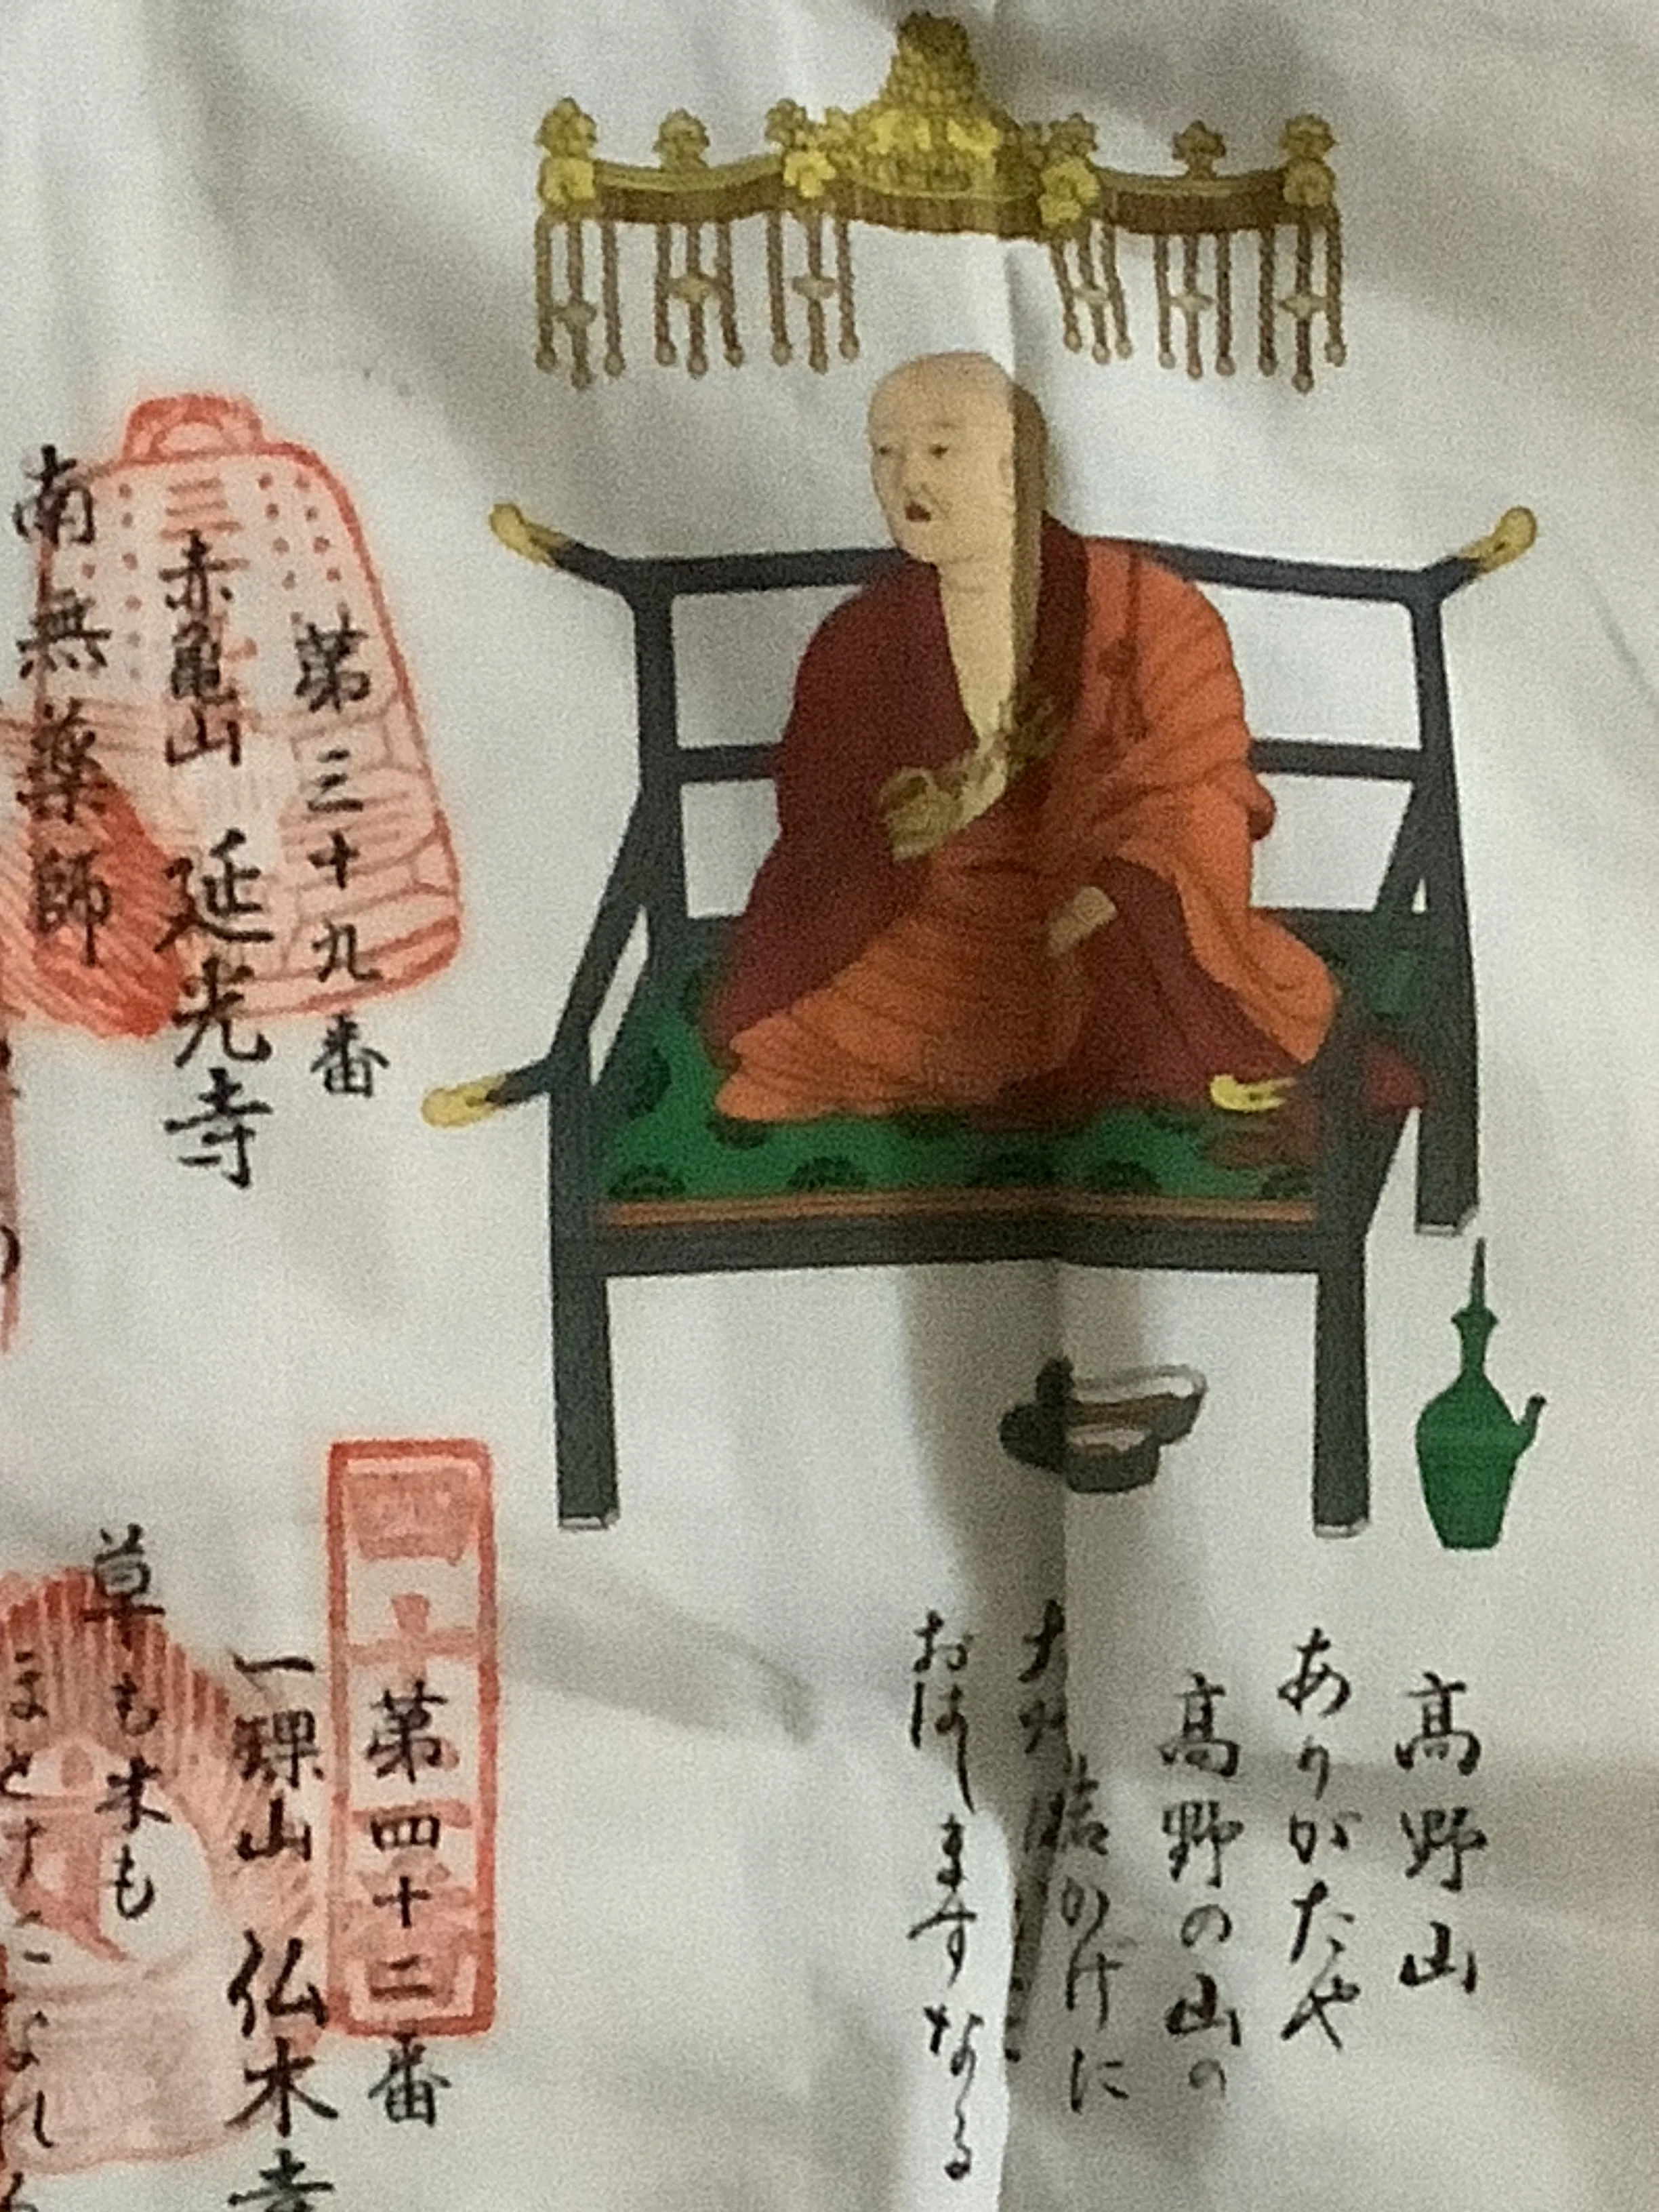 高野山
ありがたや
高野の山の
岩かげに
大師は
おはしますなる
第三十九番
赤亀山 延光寺
南無薬師
第四十二番
一𤩍山 仏木寺
草も木も